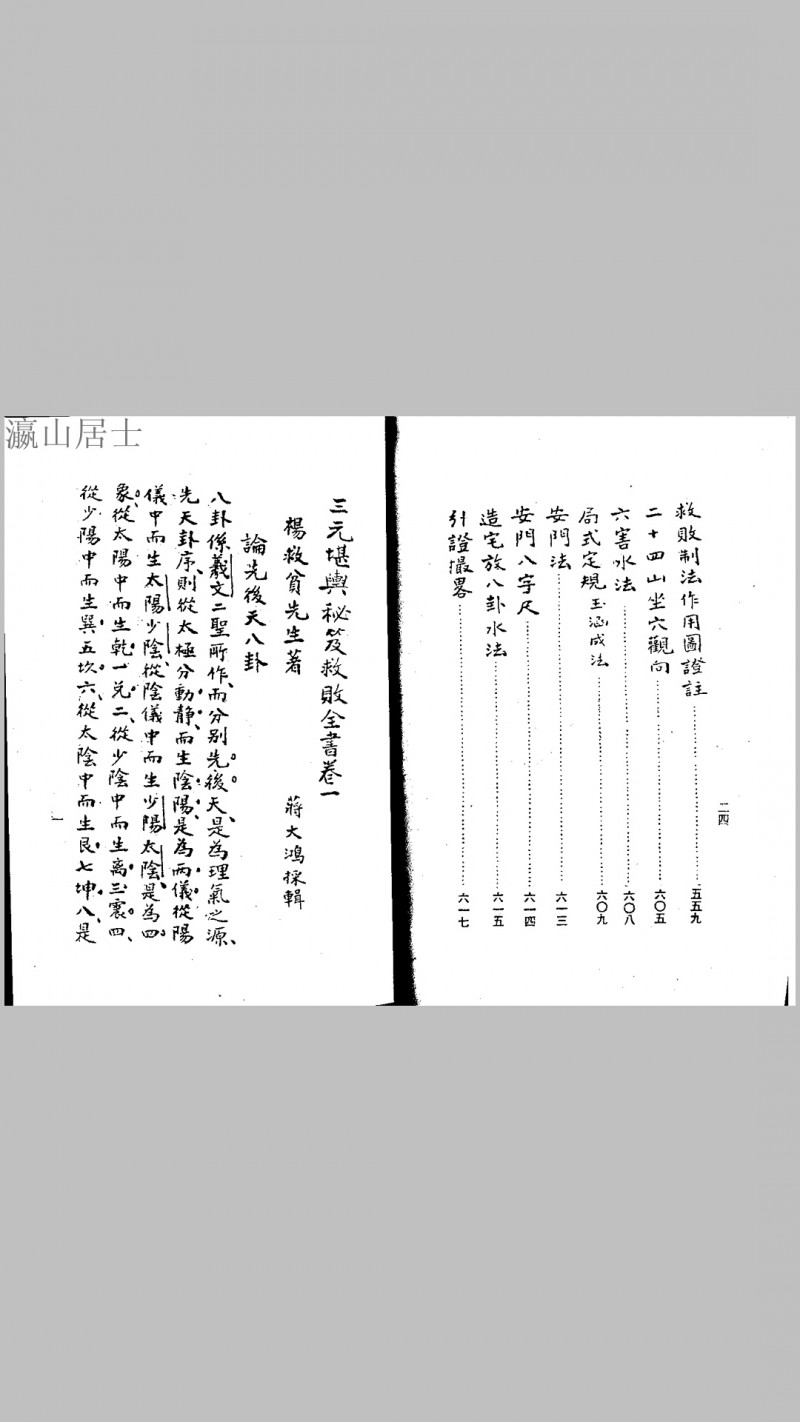 瀛山居士
救敗制法作用圖證註……五五九
二十四山坐穴觀向……六〇五
六害水法……六〇八
局式定規玉涵成法……六〇九
安門法……六一三
安門八字尺……六一四
造宅放八卦水法……六一五
引證撮畧……六一七
二四
三元堪輿秘笈救敗全書卷一
楊救貧先生著 蔣大鴻採輯
論先後天八卦
八卦係羲文二聖所作、而分別先。後。天、是為理氣之源、
先天卦序、則從太極分動靜、而生陰陽、是為兩儀、從陽
儀中而生太陽少陰、從陰儀中而生少陽太陰、是為四
象。從太陽中而生乾一兌二、從少陰中而生离三震四、
從少陽中而生巽五坎六、從太陰中而生艮七坤八、是
一